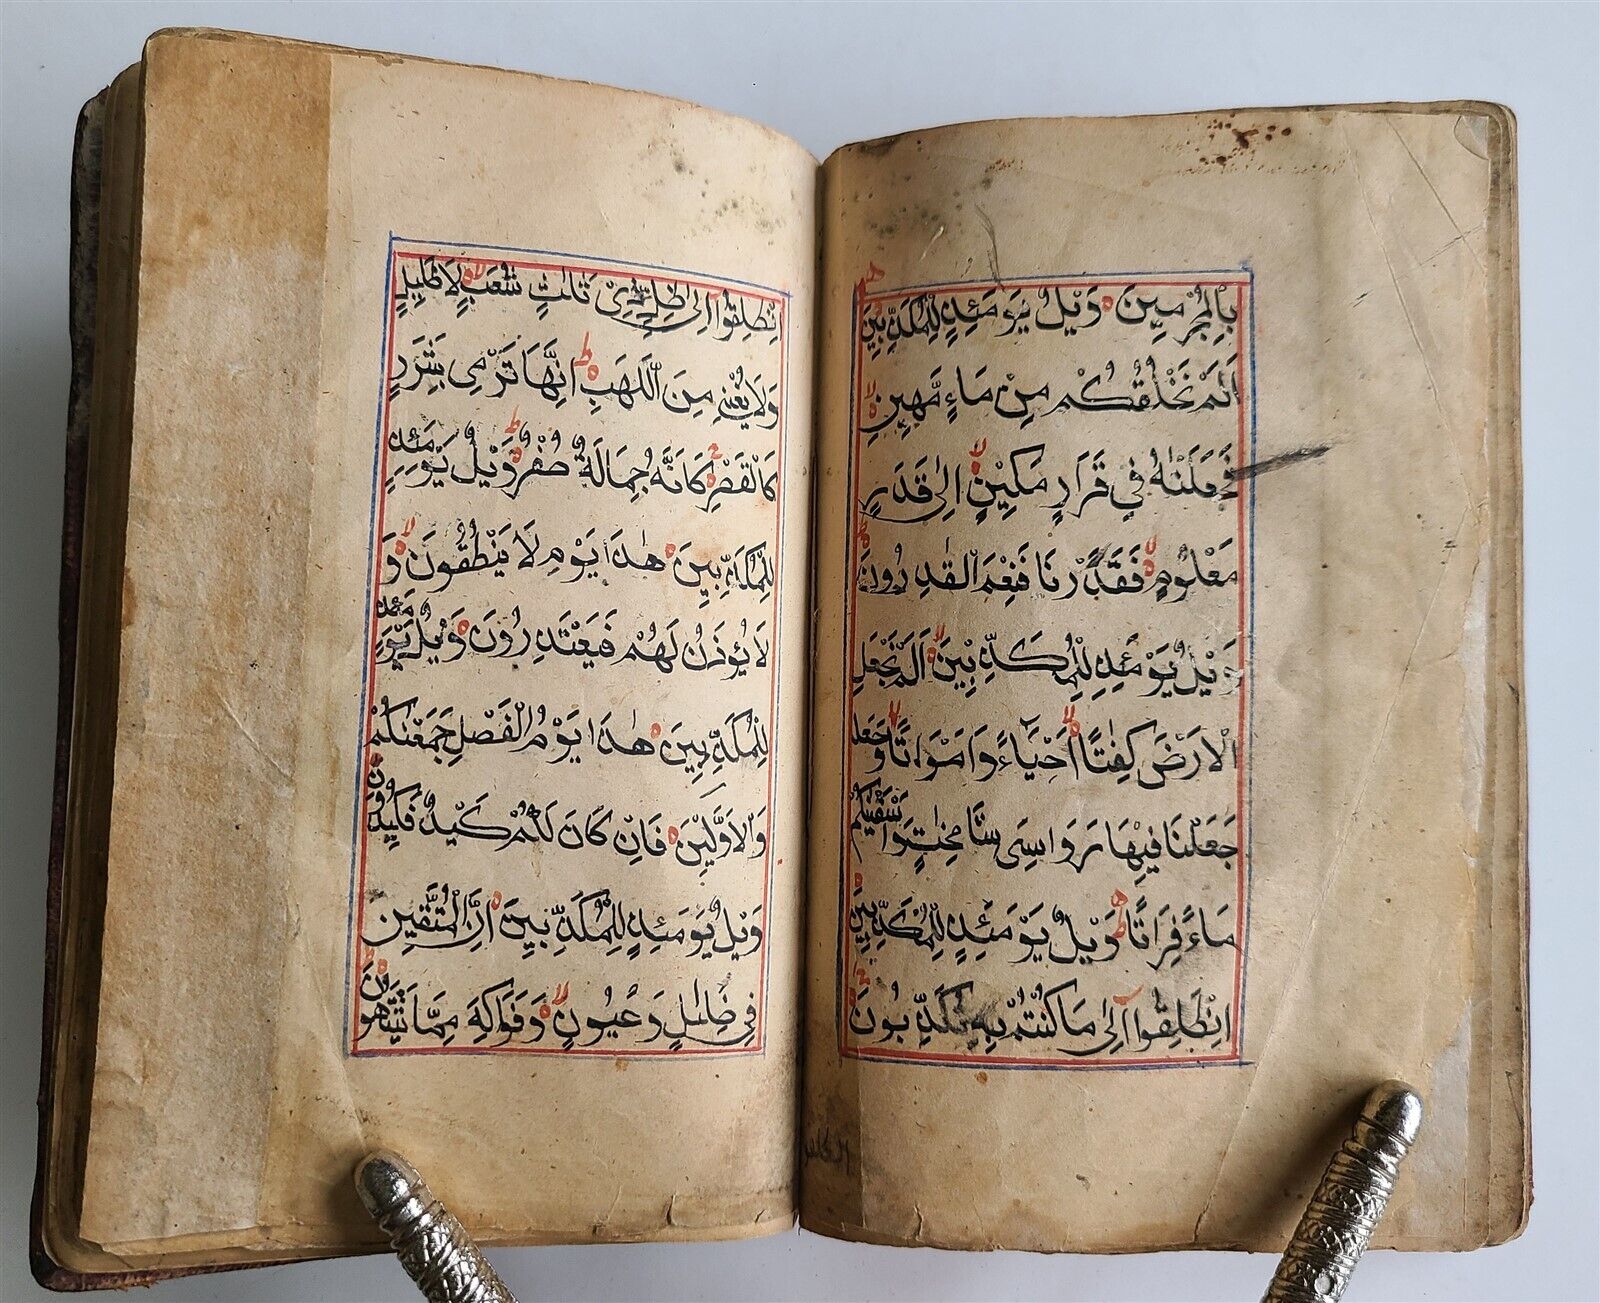 بِالْمُجْرِمِينَ وَيْلٌ يَوْمَئِذٍ لِلْمُكَذِّبِينَ
اَلَمْ نَخْلُقْكُمْ مِنْ مَاءٍ مَهِينٍ
فَجَعَلْنٰهُ فِي قَرَارٍ مَكِينٍ اِلٰى قَدَرٍ
مَعْلُومٍ فَقَدَّرْنَا فَنِعْمَ الْقٰدِرُونَ
وَيْلٌ يَوْمَئِذٍ لِلْمُكَذِّبِينَ اَلَمْ نَجْعَلِ
الْاَرْضَ كِفٰتًا اَحْيَاءً وَاَمْوَاتًا وَجَعَلْ
جَعَلْنَا فِيهَا رَوَاسِيَ شٰمِخٰتٍ وَاَسْقَيْنٰكُمْ
مَاءً فُرَاتًا وَيْلٌ يَوْمَئِذٍ لِلْمُكَذِّبِينَ
اِنْطَلِقُوا اِلٰى مَا كُنْتُمْ بِهِ تُكَذِّبُونَ
اِنْطَلِقُوا اِلٰى ظِلٍّ ذِي ثَلٰثِ شُعَبٍ لَا ظَلِيلٍ
وَلَا يُغْنِي مِنَ اللَّهَبِ اِنَّهَا تَرْمِي بِشَرَرٍ
كَالْقَصْرِ كَاَنَّهُ جِمَالَةٌ صُفْرٌ وَيْلٌ يَوْمَئِذٍ
لِلْمُكَذِّبِينَ هٰذَا يَوْمُ لَا يَنْطِقُونَ وَ
لَا يُؤْذَنُ لَهُمْ فَيَعْتَذِرُونَ وَيْلٌ يَوْمَئِذٍ
لِلْمُكَذِّبِينَ هٰذَا يَوْمُ الْفَصْلِ جَمَعْنٰكُمْ
وَالْاَوَّلِينَ فَاِنْ كَانَ لَكُمْ كَيْدٌ فَكِيدُونِ
وَيْلٌ يَوْمَئِذٍ لِلْمُكَذِّبِينَ اِنَّ الْمُتَّقِينَ
فِي ظِلٰلٍ وَعُيُونٍ وَفَوَاكِهَ مِمَّا يَشْتَهُونَ